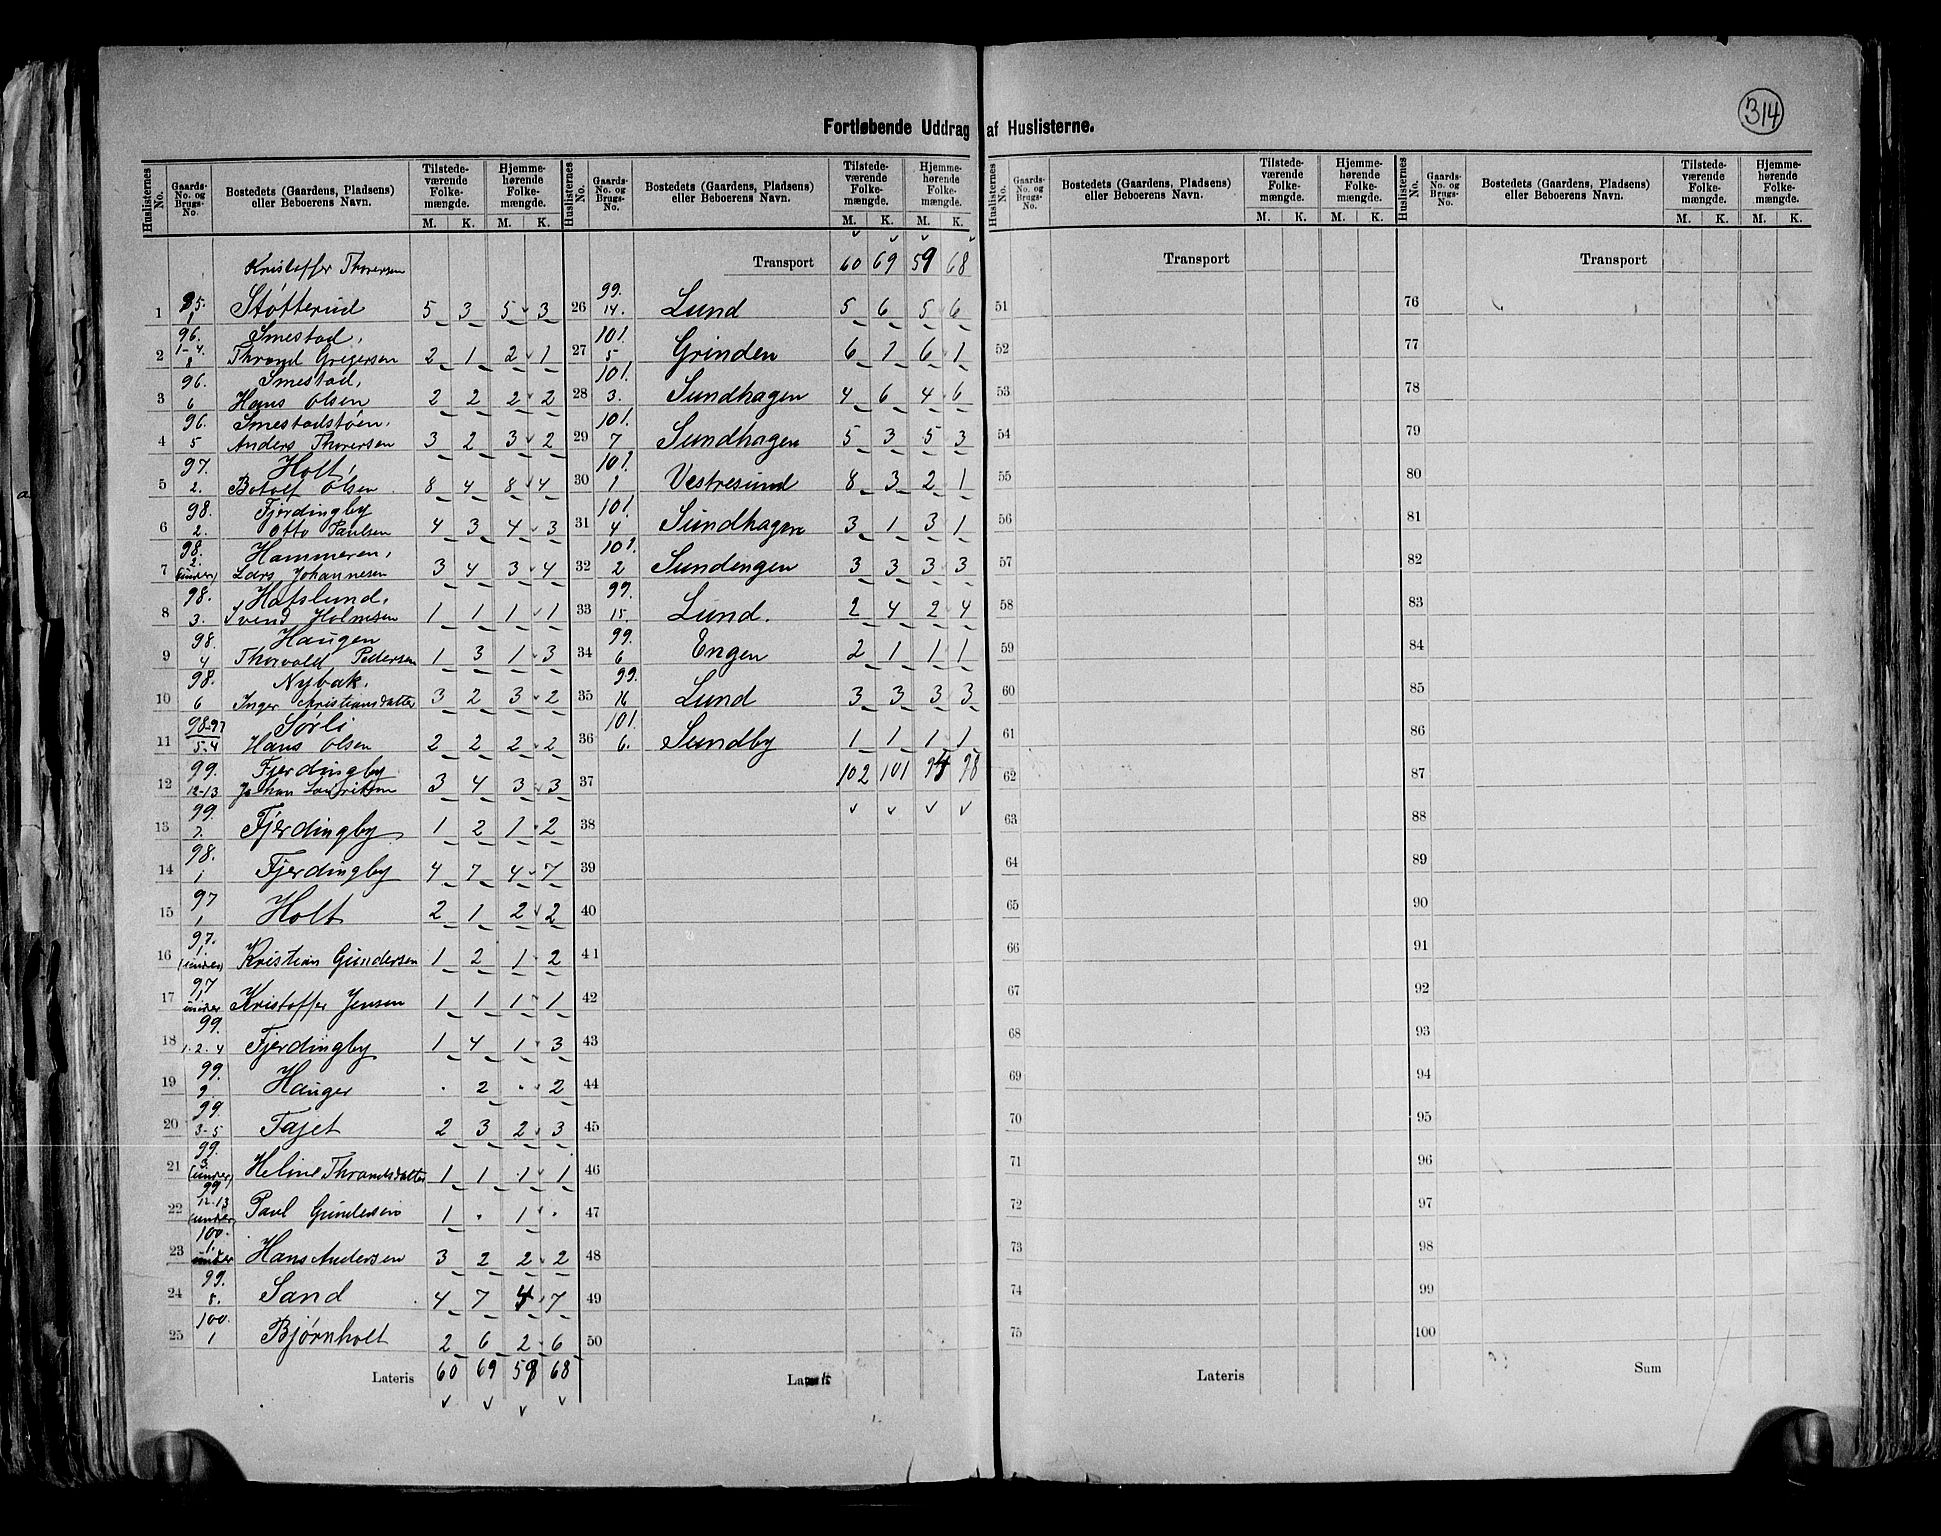 314
Fortløbende Uddrag af Huslisterne.
Huslisternes No. Gaards-No. og Brugs-No. Bostedets (Gaardens, Pladsens) eller Beboerens Navn. Tilstedeværende Folkemængde. M. K. Hjemmehørende Folkemængde. M. K.
Kristoffer Thoresen
1 95. 1 Støtterud 5 3 5 3
2 96. 1-4. 8 Smestad, Thrond Gregersen 2 1 2 1
3 96. 6 Smestad, Hans Olsen 2 2 2 2
4 96. 5 Smestadstøen, Anders Thoresen 3 2 3 2
5 97. 2. Holt, Botolf Olsen 8 4 8 4
6 98. 2. Fjerdingby Otto Paulsen 4 3 4 3
7 98. 2. (under) Hammeren, Lars Johannesen 3 4 3 4
8 98. 3. Hafslund, Svend Holmsen 1 1 1 1
9 98. 4 Haugen Thorvald Pedersen 1 3 1 3
10 98. 6 Nybak, Inger Kristiansdatter 3 2 3 2
11 98-97 5-4 Sørli Hans Olsen 2 2 2 2
12 99. 12-13 Fjerdingby Johan Lauritsen 3 4 3 3
13 99. 7. Fjerdingby 1 2 1 2
14 98. 1 Fjerdingby 4 7 4 7
15 97 1 Holt 2 1 2 2
16 97. 1 (under) Kristian Gundersen 1 2 1 2
17 97 1 under Kristoffer Jensen 1 1 1 1
18 99. 1. 2. 4 Fjerdingby 1 4 1 3
19 99. 9. Hauger . 2 . 2
20 99. 3-5 Tajet 2 3 2 3
21 99. 3. (under) Heline Thrandsdatter 1 1 1 1
22 99 12-13 (under) Paul Gundersen 1 . 1 .
23 100. 1. under Hans Andersen 3 2 2 2
24 99. 8. Sand 4 7 4 7
25 100. 1 Bjørnholt 2 6 2 6
Lateris 60 69 59 68
Huslisternes No. Gaards-No. og Brugs-No. Bostedets (Gaardens, Pladsens) eller Beboerens Navn. Tilstedeværende Folkemængde. M. K. Hjemmehørende Folkemængde. M. K.
Transport 60 69 59 68
26 99. 14. Lund 5 6 5 6
27 101. 5 Grinden 6 1 6 1
28 101. 3. Sundhagen 4 6 4 6
29 101. 7 Sundhagen 5 3 5 3
30 101. 1 Vestresund 8 3 2 1
31 101. 4 Sundhagen 3 1 3 1
32 101. 2 Sundengen 3 3 3 3
33 99. 15. Lund. 2 4 2 4
34 99. 6 Engen 2 1 1 1
35 99. 16 Lund 3 3 3 3
36 101. 6. Sundby 1 1 1 1
37 102 101 94 98
38
39
40
41
42
43
44
45
46
47
48
49
50
Huslisternes No. Gaards-No. og Brugs-No. Bostedets (Gaardens, Pladsens) eller Beboerens Navn. Tilstedeværende Folkemængde. M. K. Hjemmehørende Folkemængde. M. K.
Transport
51
52
53
54
55
56
57
58
59
60
61
62
63
64
65
66
67
68
69
70
71
72
73
74
75
Lateris
Huslisternes No. Gaards-No. og Brugs-No. Bostedets (Gaardens, Pladsens) eller Beboerens Navn. Tilstedeværende Folkemængde. M. K. Hjemmehørende Folkemængde. M. K.
Transport
76
77
78
79
80
81
82
83
84
85
86
87
88
89
90
91
92
93
94
95
96
97
98
99
100
Sum